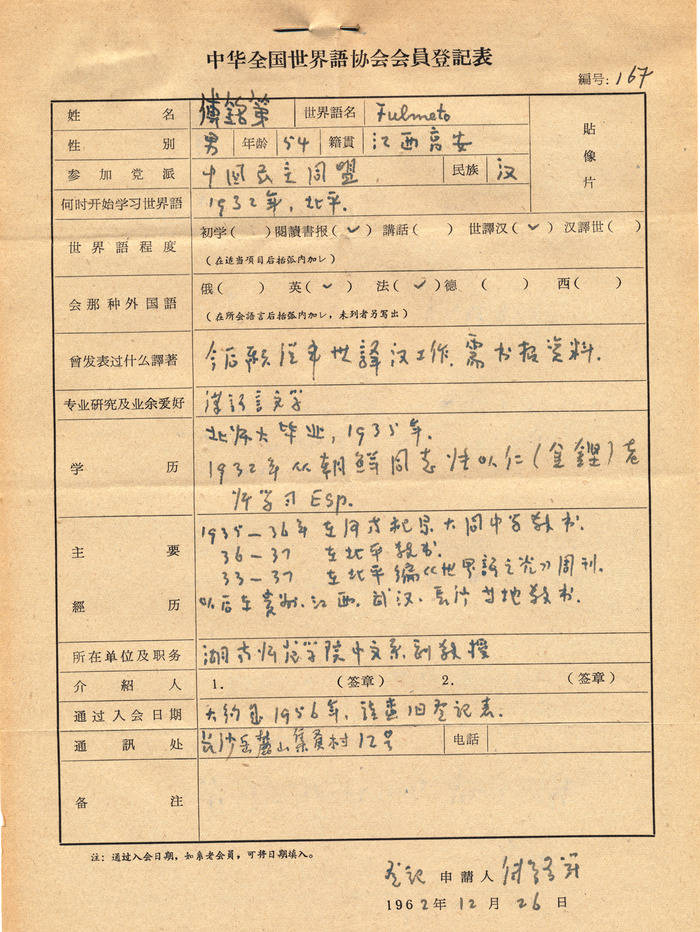 中华全国世界語协会会員登記表
編号: 167
姓名 傅銘第 世界語名 Fulmeto
貼像片
性別 男 年龄 54 籍貫 江西高安
参加党派 中国民主同盟 民族 汉
何时开始学习世界語 1932年，北平.
世界語程度 初学( )閱讀書报(✓)講話( ) 世譯汉(✓)汉譯世( )
(在适当项目后括弧内加✓)
会那种外国語 俄( ) 英(✓) 法(✓)德( ) 西( )
(在所会語言后括弧内加✓，未列者另写出)
曾发表过什么譯著 今后願从事世譯汉工作，需书报资料.
专业研究及业余爱好 漢語言文学
学历 北师大毕业，1935年.
1932年从朝鮮同志 (金 )老
师学习 Esp.
主要經历 1935—36年 在 大同中学教书.
36—37 在北平教书.
33—37 在北平編《世界語之光》周刊.
以后在贵州、江西、武汉、長沙 地教书.
所在单位及职务 湖南师范学院中文系副教授
介紹人 1. (签章) 2. (签章)
通过入会日期 大约是1956年，請查旧登记表.
通訊处 长沙岳麓山集賢村12号 电話
备注
注：通过入会日期，如系老会員，可将日期填入。
登記 申請人 傅銘第
1962年12月26日